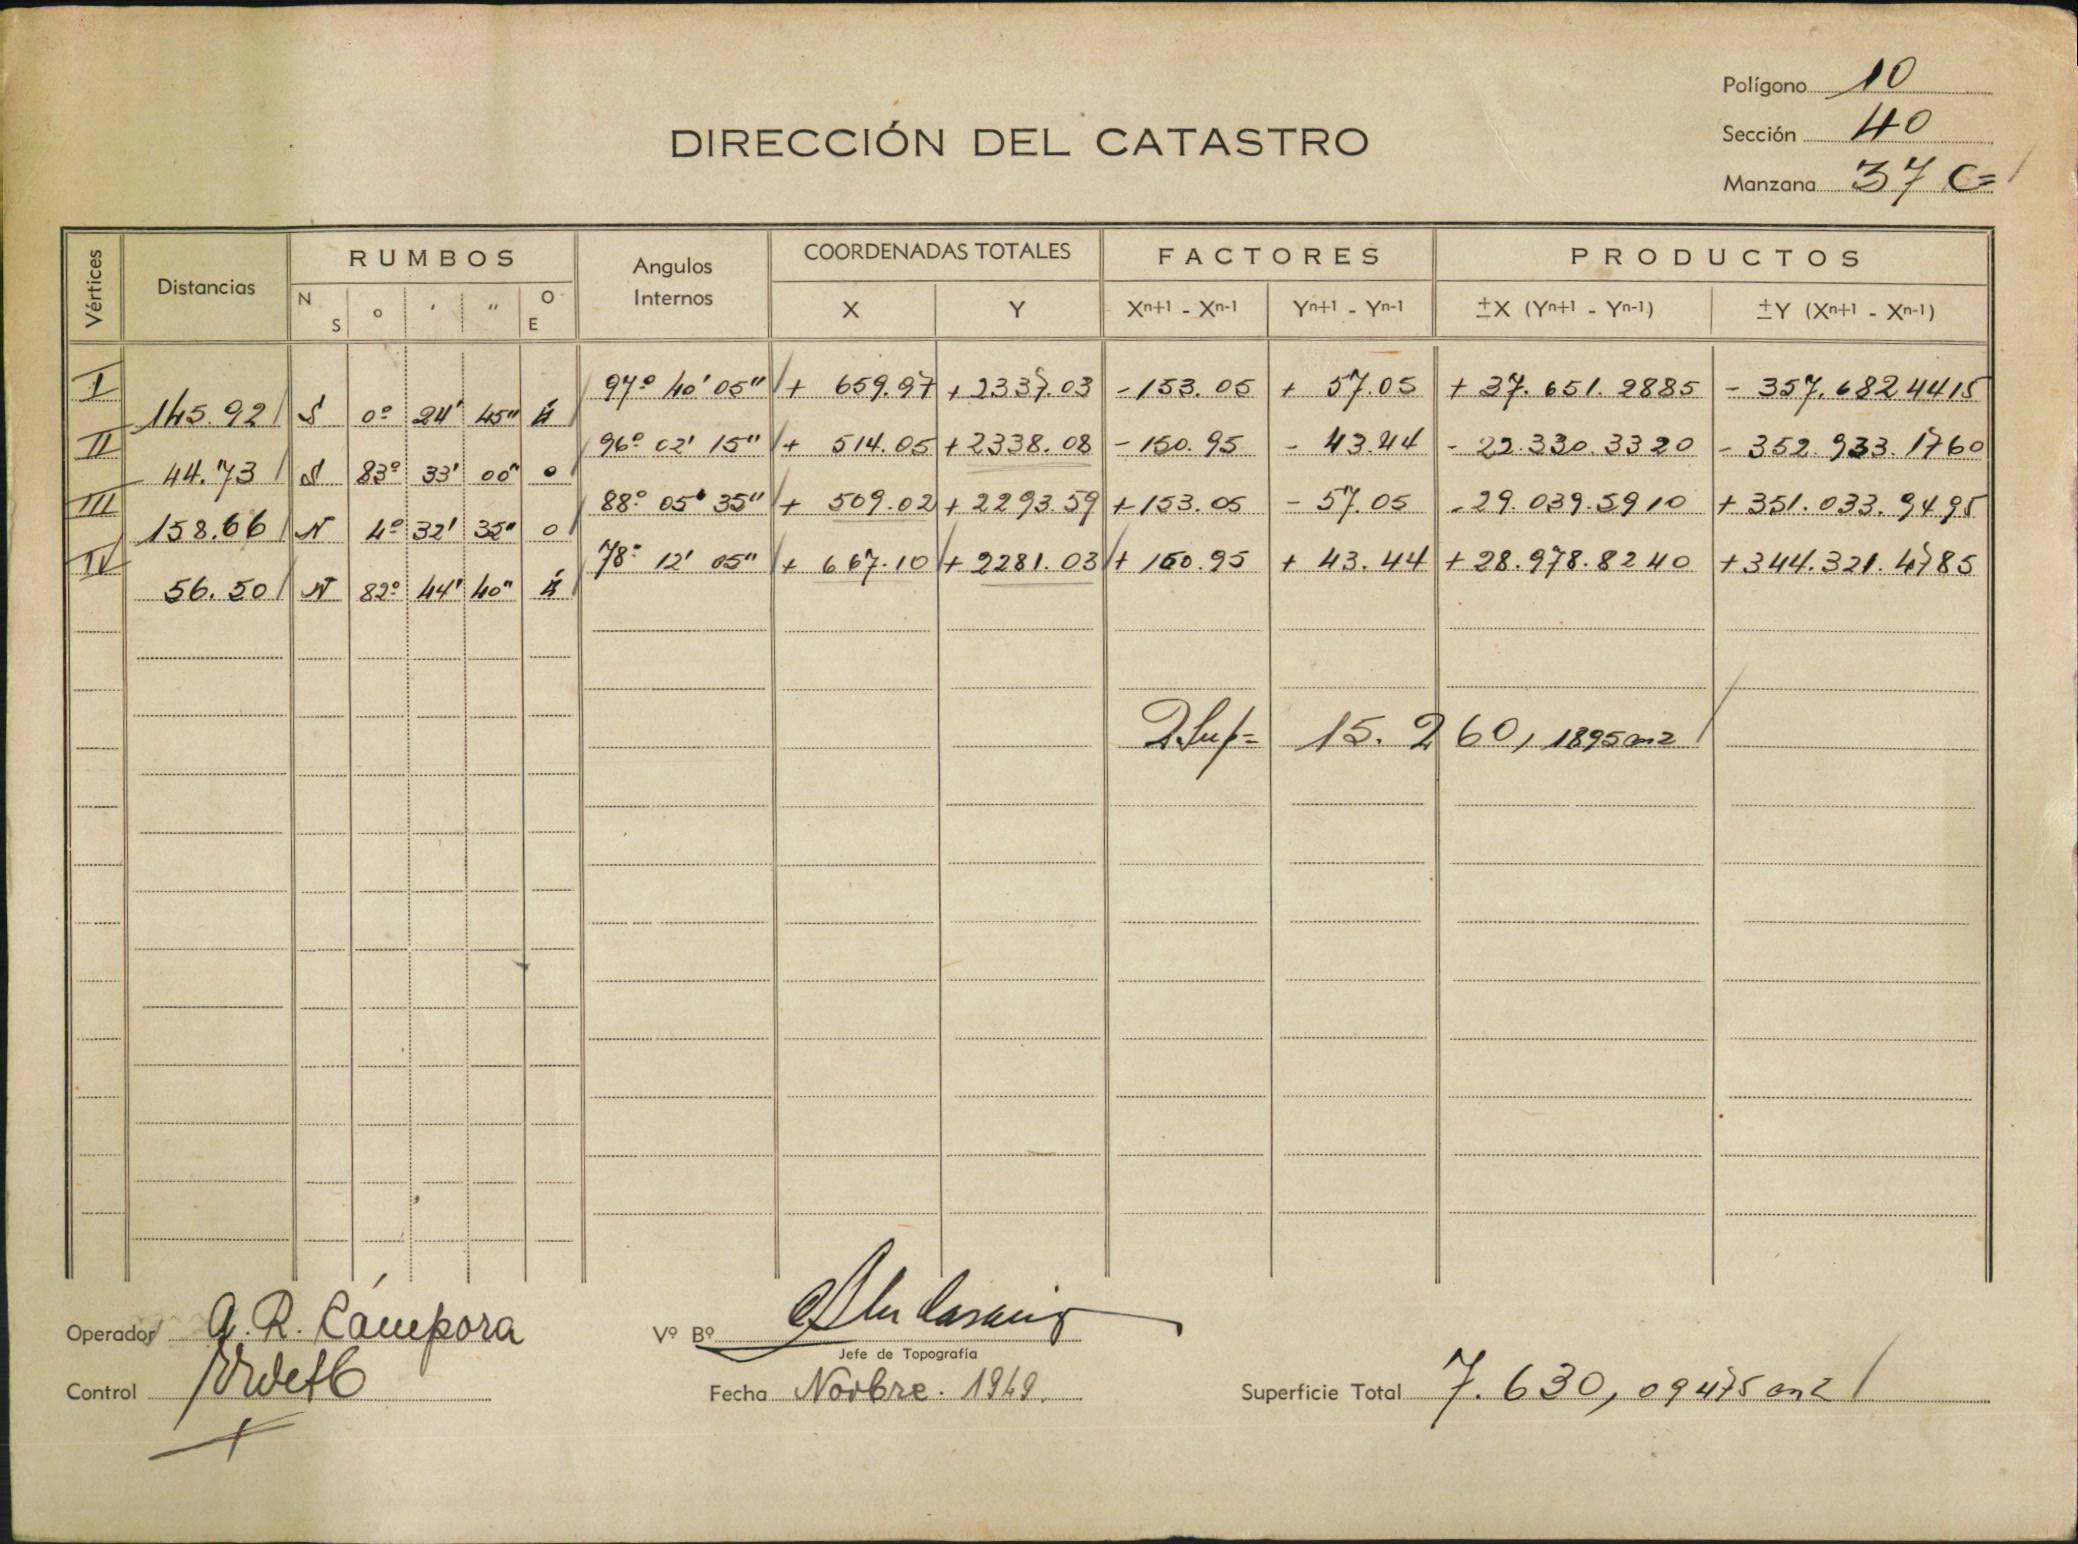 Polígono 10
DIRECCIÓN DEL CATASTRO
Sección 40
Manzana 37 C=
Vértices Distancias RUMBOS Angulos Internos COORDENADAS TOTALES FACTORES PRODUCTOS
N S ° ' " O E X Y Xn+1 - Xn-1 Yn+1 - Yn-1 ±X (Yn+1 - Yn-1) ±Y (Xn+1 - Xn-1)
I 97° 40' 05" + 659.97 + 2337.03 - 153.05 + 57.05 + 37.651.2885 - 357.682 4415
145.92 S 0° 24' 45" E
II 96° 02' 15" + 514.05 + 2338.08 - 150.95 - 43.44 - 22.330.3320 - 352.933.1760
44.73 S 83° 33' 00" O
III 88° 05' 35" + 509.02 + 2293.59 + 153.05 - 57.05 - 29.039.5910 + 351.033.9495
158.66 N 4° 32' 35" O
IV 78° 12' 05" + 667.10 + 2281.03 + 150.95 + 43.44 + 28.978.8240 + 344.321.4785
56.50 N 82° 44' 40" E
2 Sup= 15.260,1895 m2
Operador A. R. Cámpora
Vº Bº
Jefe de Topografía
Control
Fecha Novbre. 1949.
Superficie Total 7.630,09475 m2